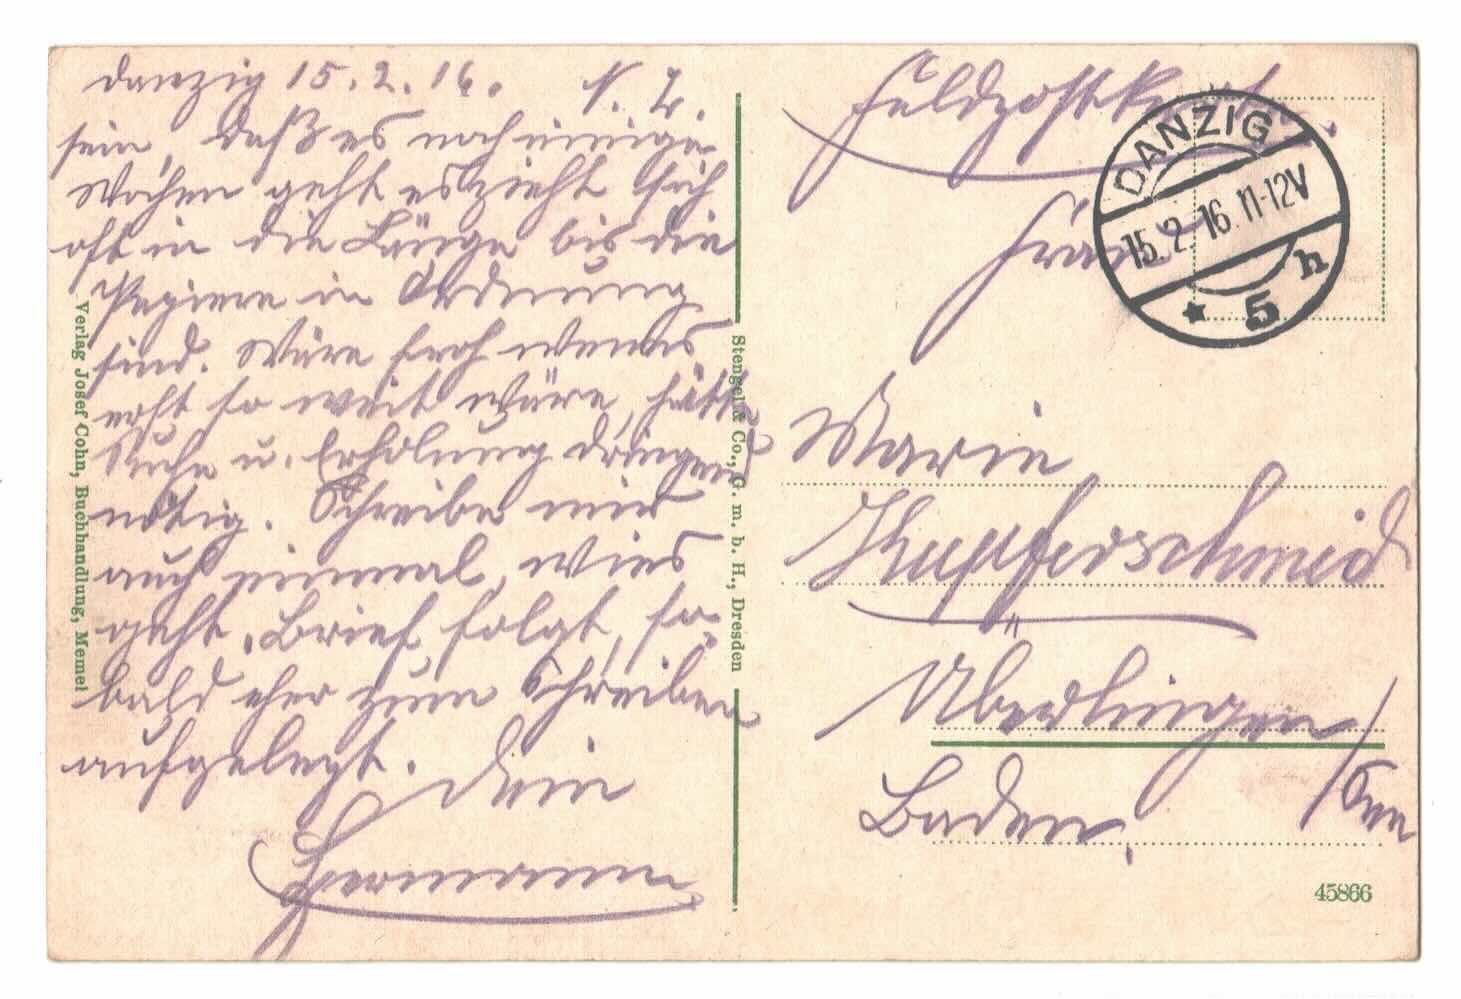 Danzig 15.2.16.
sein, daß es noch einige
Wochen geht es zieht sich
oft in die Länge bis die
Papiere in Ordnung
sind. Wäre froh wenns
erst so weit wäre, hätte
Ruhe u. Erholung dringend
nötig. Schreibe mir
auch einmal, wies
geht. Brief folgt, so
bald eher zum Schreiben
aufgelegt.
Dein
Hermann
Feldpostkarte.
Frau
Marie
Kupferschmid
Überlingen
/See
Baden.
DANZIG
15.2.16.11-12V
* 5 h
Verlag Josef Cohn, Buchhandlung, Memel
Stengel & Co., G. m. b. H., Dresden
45866